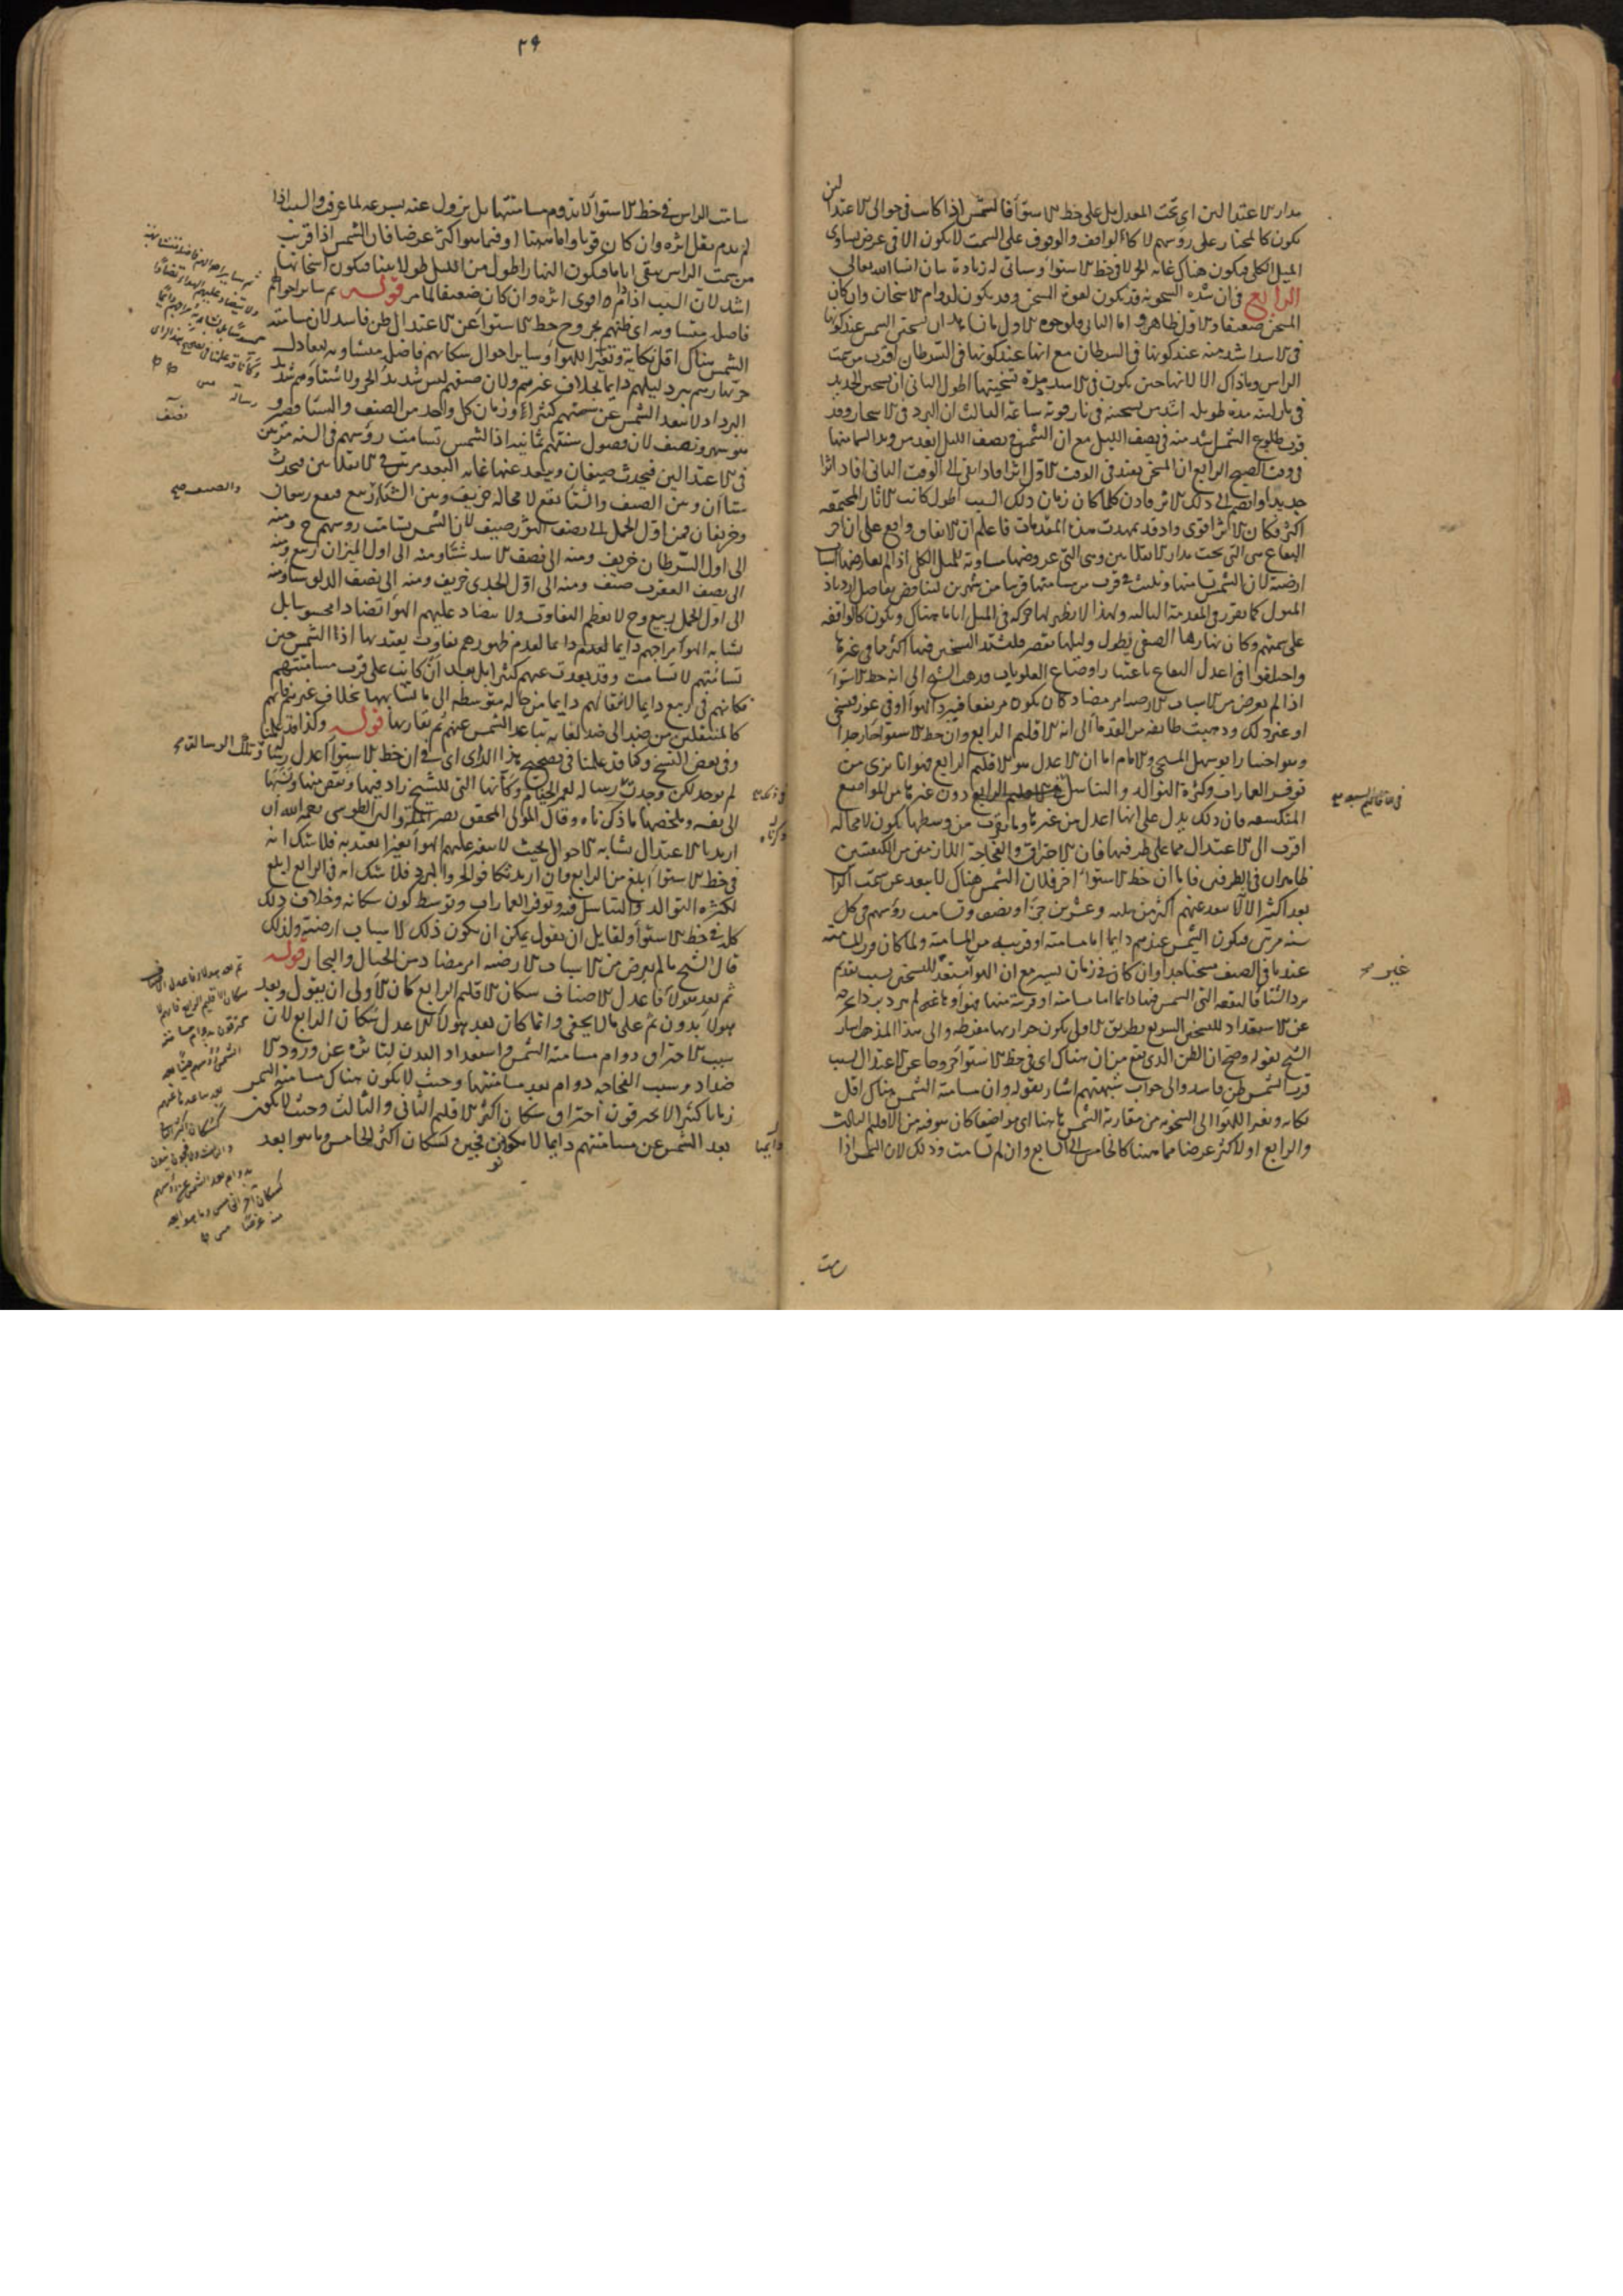 مدار الاعتدالين اي تحت المعدل بل على خط الاستوآ فالشمس اذا كانت في حوالي الاعتدالين
تكون كالمجتاز على رؤسهم لا كالواقف والوقوف على السمت لا يكون الا في عرض يساوى
الميل الكلى فيكون هناك غاية الحر لا في خط الاستوآ وسياتى له زيادة بيان انشا الله تعالى
الرابع في ان شده السخونه قد يكون لقوة المسخن وقد يكون لدوام الاسخان وان كان
المسخن ضعيفا والاول ظاهر واما الثانى فلوجوه الاول ما نشاهد ان تسخن الشمس عند كونها
فى الاسد اشد منه عند كونها فى السرطان مع انها عند كونها فى السرطان اقرب من سمت
الراس وما ذاك الا لانها حين يكون فى الاسد مدة تسخينها اطول الثانى ان تسخن الحديد
فى نار لينه مدة طويله اشد من تسخنه فى نار قويه ساعة الثالث ان البرد فى الاسحار وقد
قرب طلوع الشمس اشد منه فى نصف الليل مع ان الشمس فى نصف الليل ابعد من
جديدا وانضم الى ذلك الاثر فاذن كلما كان زمان ذلك السبب اطول كانت الاثار المجتمعه
اكثر فكان الاثر اقوى واذ قد تمهدت هذه المقدمات فاعلم ان الاتفاق واقع على ان احر
البقاع هى التى تحت مدار الانقلابين وهى التى عروضها مساوية للميل الكلى اذا لم يعارضها اسباب
ارضية لان الشمس تسامتها وتلبث فى قرب من مسامتتها قريبا من شهرين لتناقص تفاضل ازدياد
الميول كما تقرر فى المقدمة الثالثه ولهذا لا يظهر لها حركة فى الميل اياما هناك ويكون كالواقفه
على سمتهم وكان نهارها الصيفى يطول وليلها يقصر فلشتد التسخين فيها اكثر مما فى غيرها
واختلفوا فى اعدل البقاع باعتبار اوضاع العلويات فذهب الشيخ الى انه خط الاستوآ
اذا لم يعرض من الاسباب الارضية امر مضاد كان يكون مرتفعا فيبرد الهوآ او فى غور فيسخن
او غير ذلك وذهبت طايفه من القدمآ الى انه الاقليم الرابع وان خط الاستوآ حار جدا
وهو اختيار ابو سهل المسيحى والامام اما ان الاعدل هو الاقليم الرابع فهو انا نرى من
توفر العمارات وكثرة التوالد والتناسل دون غيرها من المواضع
فى الاقاليم السبعه
المنكشفه فان ذلك يدل على انها اعدل من غيرها وما يقرب من وسطها يكون لا محالة
اقرب الى الاعتدال مما على طرفيها فان الاحتراق والفجاجة اللازمتين من الكيفيتين
ظاهران فى الطرفين فاما ان خط الاستوآ احر فلان الشمس هناك لا تبعد عن سمت الراس
بعدا كثيرا لانها لا تبعد عنهم اكثر من ثلثه وعشرين جزءا ونصف وتسامت رؤسهم فى كل
سنه مرتين فيكون الشمس عندهم دايما اما مسامته او قريبه من المسامتة ولما كان قرب المسامته
عندنا فى الصيف مسخنا جدا وان كان فى زمان يسير مع ان الهوآ مستعد للتسخن بسبب تقدم
غير
برد الشتا فالبقعه التى الشمس فيها دايما اما مسامته او قريبة منها
عن الاستعداد للتسخن السريع بطريق الاولى يكون حرارتها مفرطة والى هذا المذهب اشار
الشيخ بقوله وصح ان الظن الذى يقع من ان هناك اى فى خط الاستوآ خروجا عن الاعتدال بسبب
قرب الشمس ظن فاسد والى جواب شبهتهم اشار بقوله وان مسامتة الشمس هناك اقل
نكاية وتغيرا للهوآ الى السخونه من مقاربة الشمس هاهنا اى مواضعنا كان سوقه من الاقليم الثالث
والرابع او لاكثر عرضا مما ههنا كالخامس الى السابع وان لم تسامت وذلك لان الشمس اذا
سامت
٢٩
سامتت الراس فى خط الاستوآ لا تدوم مسامتتها بل يزول عنه بسرعه لما عرفت والسبب اذا
لم يدم يقل اثره وان كان قويا واما ههنا او فيما هو اكثر عرضا فان الشمس اذا قربت
من سمت الراس يبقى اياما فيكون النهار اطول من الليل طولا بينا فيكون اسخانها
اشد لان السبب اذا دام قوى اثره وان كان ضعيفا لما مر قوله ثم ساير احوالهم
فاضله متشابهه اى ظنهم بخروج خط الاستوآ عن الاعتدال ظن فاسد لان مسامتة
الشمس هناك اقل نكاية وتغيرا للهوآ وساير احوال سكانهم فاضلة متشابه لتعادل
حر نهارهم ببرد ليلهم دايما بخلاف غيرهم ولان صيفهم ليس شديد الحر ولا شتاؤهم شديد
البرد اذ لا تبعد الشمس عن سمتهم كثيرا وزمان كل واحد من الصيف والشتا قصير وهو
شهر ونصف لان فصول سنتهم ثمانيه اذ الشمس تسامت رؤسهم فى السنه مرتين
فى الاعتدالين فيحدث صيفان ويبعد عنها غاية البعد مرتين فى الانقلابين فيحدث
شتاآن وبين الصيف والشتا يقع لا محالة خريف وبين الشتا والصيف ربيع فيقع ربيعان
وخريفان فمن اول الحمل الى نصف الثور صيف لان الشمس تسامت رؤسهم ح ومنه
الى اول السرطان خريف ومنه الى نصف الاسد شتا ومنه الى اول الميزان ربيع ومنه
الى نصف العقرب صيف ومنه الى اول الجدى خريف ومنه الى نصف الدلو شتا ومنه
الى اول الحمل ربيع وح لا يعظم التفاوت ولا يتضاد عليهم الهوا تضادا محسوسا بل
تشابه الهوآ مزاجهم دايما لعدم ظهورهم بتفاوت يعتد بها اذ الشمس حين
تسامتهم لا تسامت وقد بعدت عنهم كثيرا بل بعد ان كانت على قرب مسامتتهم
فكانهم فى ربيع دايما لانتقالهم دايما من حالة متوسطه الى ما تشابهها بخلاف غيرهم فانهم
كالمنتقلين من ضد الى ضد لغاية تباعد الشمس عنهم ثم تقاربها قوله وكنا قد علمنا
وفى بعض النسخ وكنا قد علمنا فى تصحيح هذا الراى اى فى ان خط الاستوآ اعدل رسالة وتلك الرسالة
لم توجد لكن وجدت رسالة لعمر الخيام وكانها التى للشيخ زاد فيها ونقص منها ونسبها
الى نفسه وملخصها ما ذكرناه وقال المولى المحقق نصير الملة والدين الطوسى رحمه الله ان
اريد بالاعتدال تشابه الاحوال بحيث لا يتغير عليهم الهوآ تغيرا يعتد به فلا شك انه
فى خط الاستوآ ابلغ من الرابع وان اريد تكافو الحر والبرد فلا شك انه فى الرابع ابلغ
لكثرة التوالد والتناسل فيه وتوفر العمارات وتوسط لون سكانه وخلاف ذلك
كله فى خط الاستوآ ولقايل ان يقول يمكن ان يكون ذلك لاسباب ارضية ولذلك
قال الشيخ ما لم يعرض من الاسباب الارضيه امر مضاد من الجبال والبحار قوله
ثم بعد هولآ فاعدل الاصناف سكان الاقليم الرابع كان الاولى ان يقول وبعد
هولآ بدون ثم على ما لا يخفى وانما كان بعد هولآ الاعدل سكان الرابع لان
سبب الاحتراق دوام مسامتة الشمس واستعداد البدن لتاثره عن ورود الا
ضداد وسبب الفجاجه دوام بعد مسامتتها وحيث لا يكون هناك مسامتة الشمس
زمانا كثيرا لا يحترقون احتراق سكان اكثر الاقليم الثانى والثالث وحيث لا يكون
بعد الشمس عن مسامتتهم دايما لا يكونون فجين كسكان اكثر الخامس وما هو ابعد